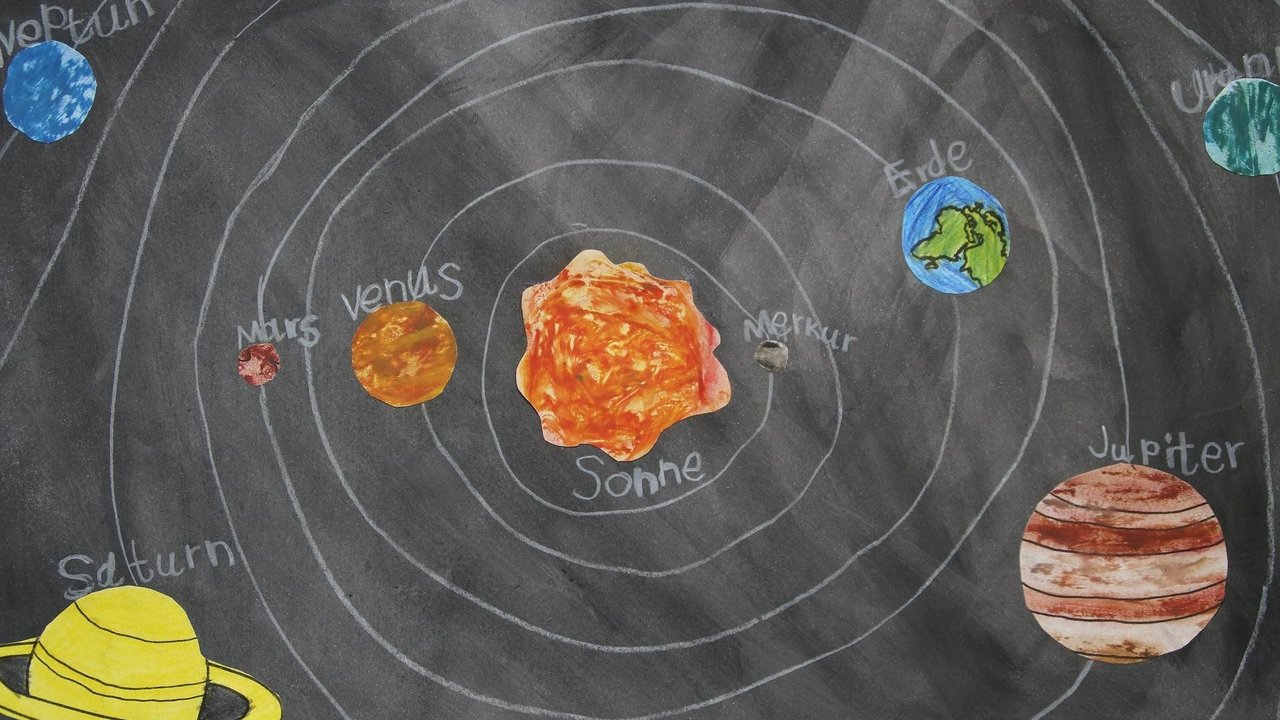 Neptun
Uran
Erde
Venus
Mars
Merkur
Sonne
Jupiter
Saturn